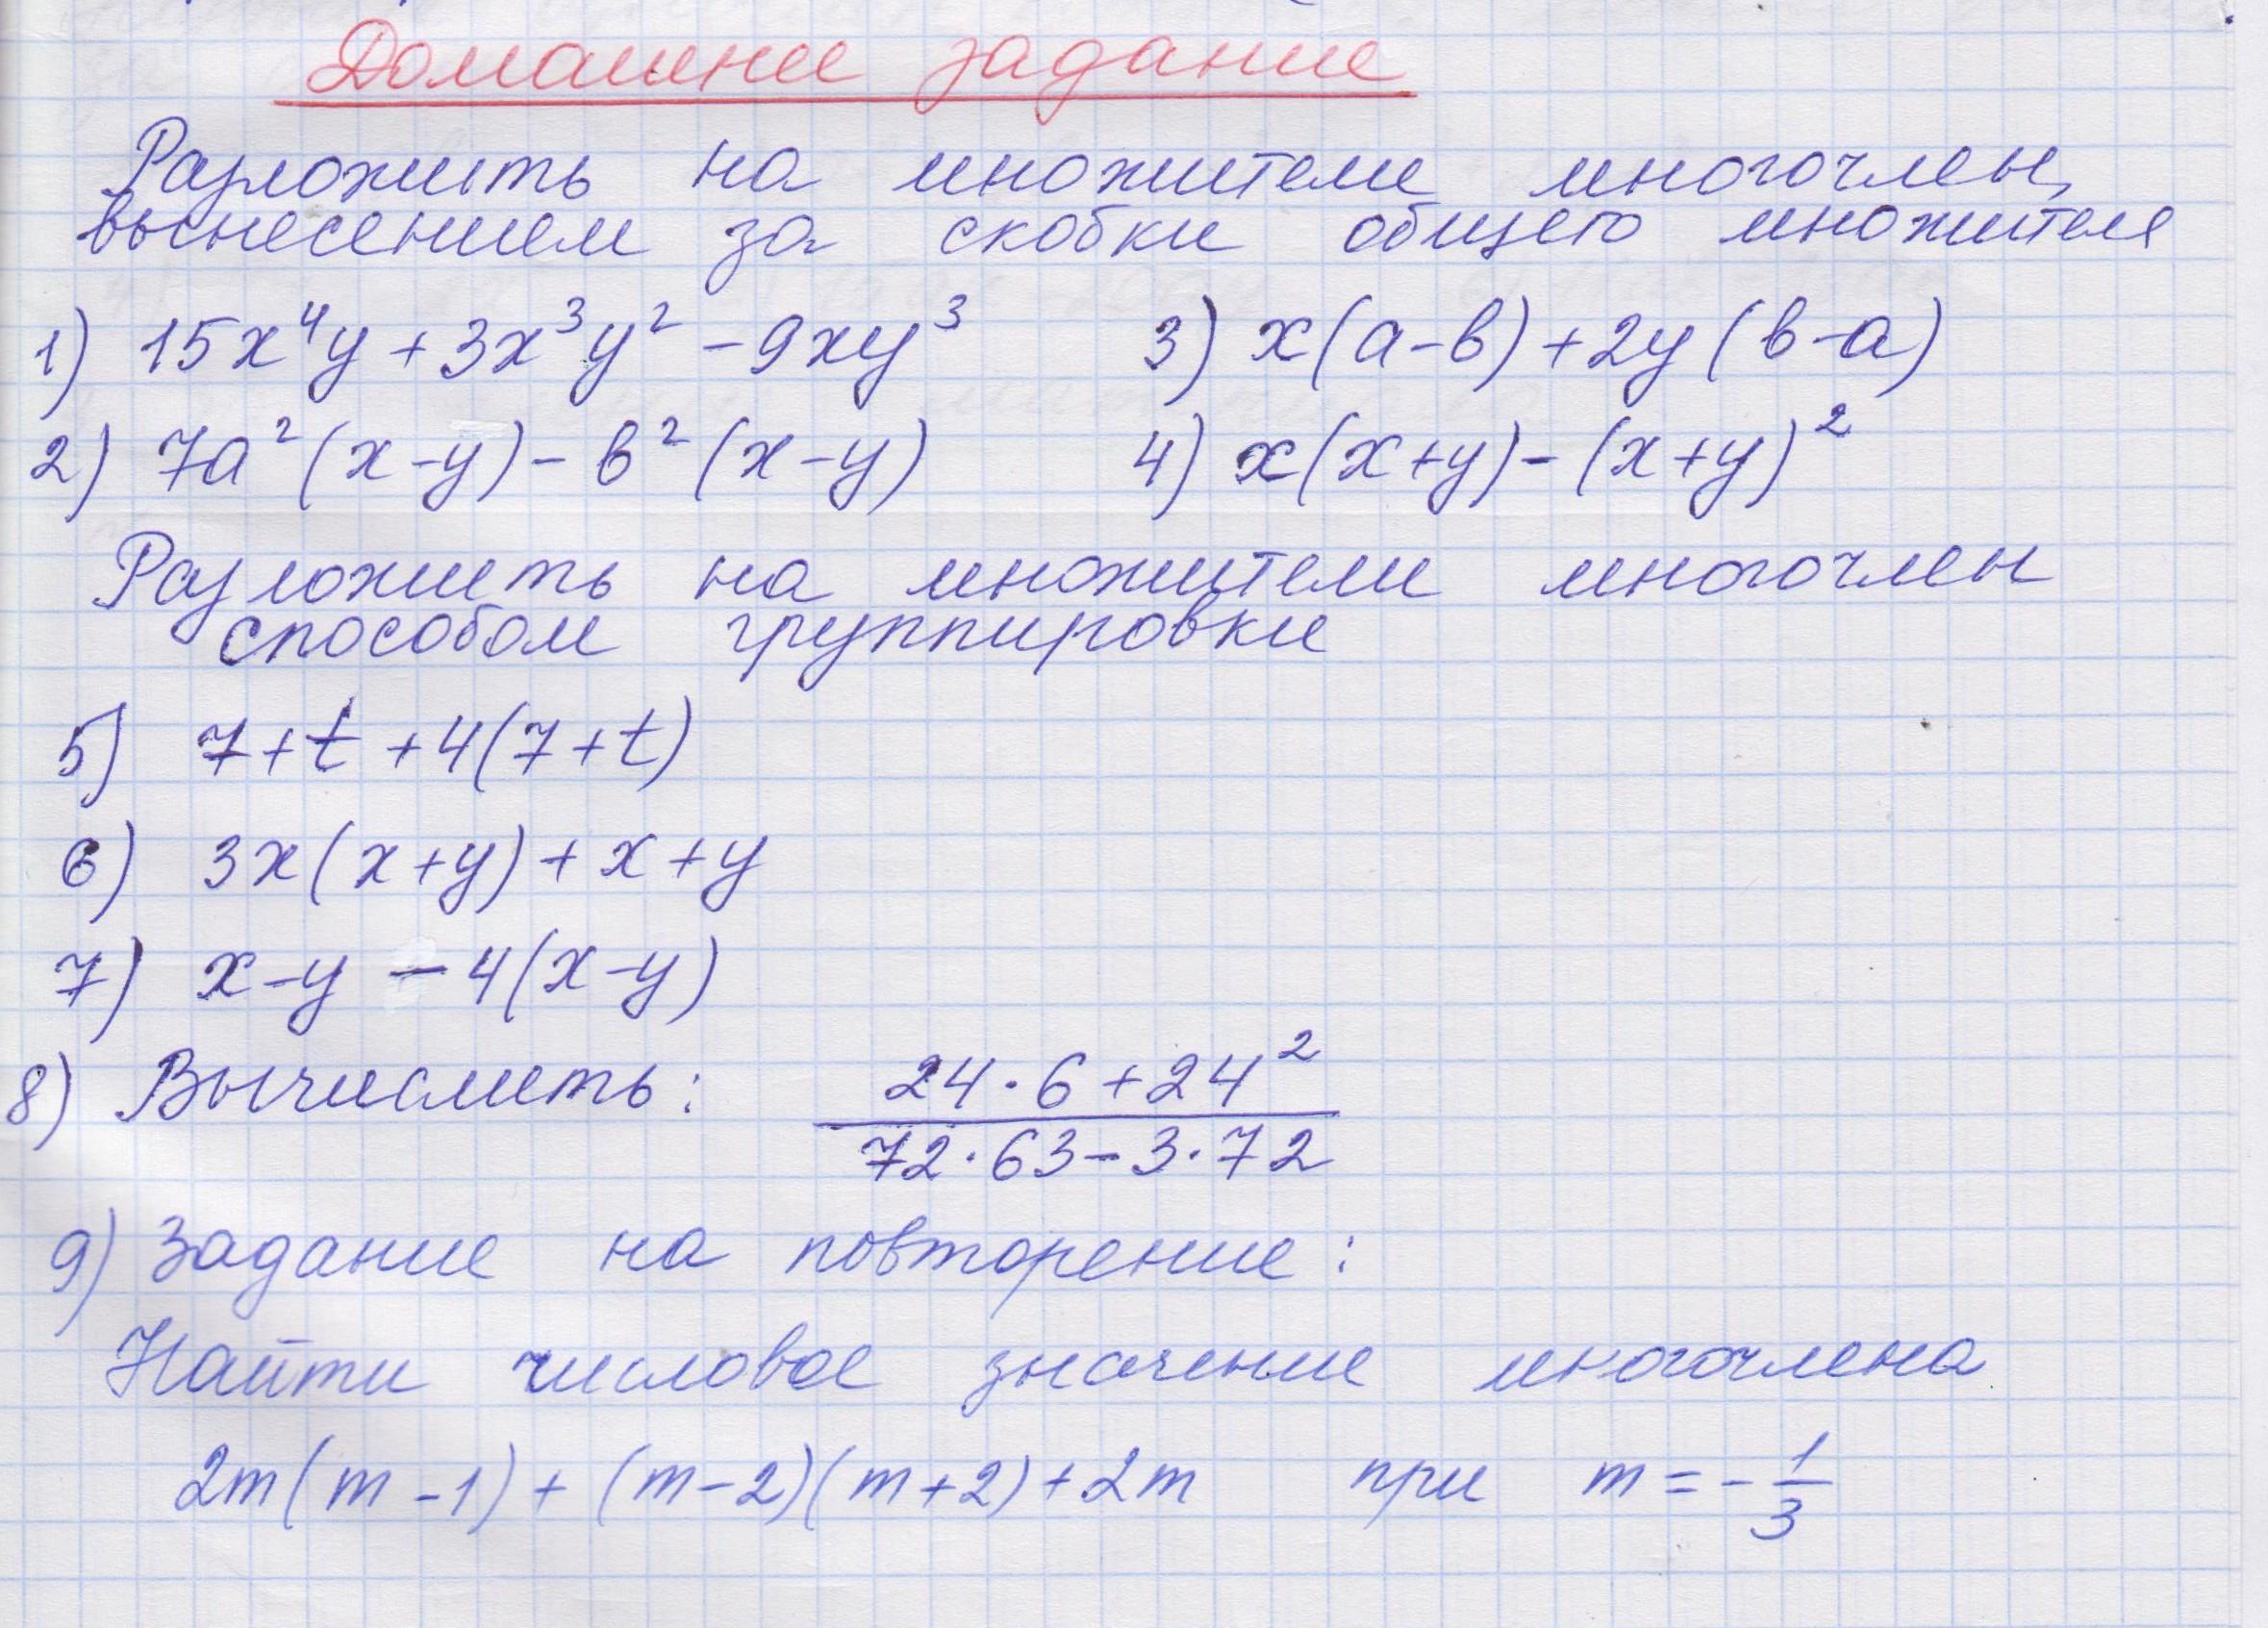 Домашнее задание
Разложить на множители многочлен,
вынесением за скобки общего множителя
1) 15x⁴y + 3x³y² - 9xy³
3) x(a-b) + 2y(b-a)
2) 7a²(x-y) - b²(x-y)
4) x(x+y) - (x+y)²
Разложить на множители многочлен
способом группировки
5) 7+t+4(7+t)
6) 3x(x+y)+x+y
7) x-y-4(x-y)
8) Вычислить: (24·6+24²)/(72·63-3·72)
9) Задание на повторение:
Найти числовое значение многочлена
2m(m-1)+(m-2)(m+2)+2m при m=-1/3